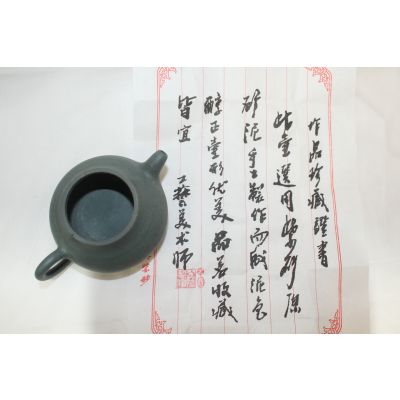 作品珍藏證書
此壶選用紫砂原
砂泥手工製作而成泥色
醇正壶形优美品茗收藏
皆宜
工藝美术師